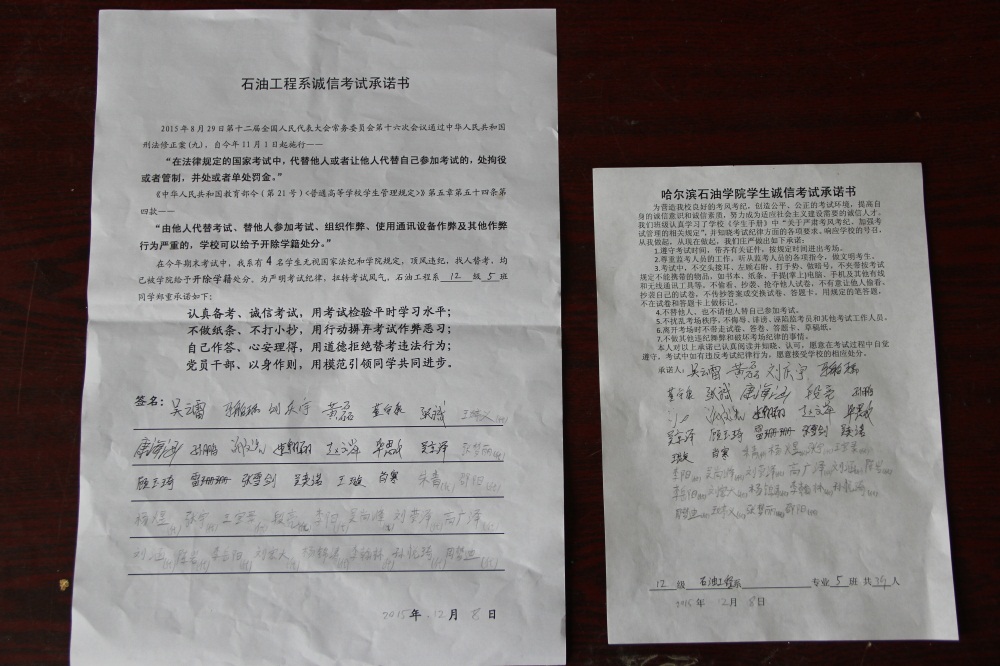 石油工程系诚信考试承诺书
2015年8月29日第十二届全国人民代表大会常务委员会第十六次会议通过中华人民共和国
刑法修正案(九),自今年11月1日起施行——
“在法律规定的国家考试中,代替他人或者让他人代替自己参加考试的,处拘役
或者管制,并处或者单处罚金。”
《中华人民共和国教育部令(第21号)<普通高等学校学生管理规定>》第五章第五十四条第
四款——
“由他人代替考试、替他人参加考试、组织作弊、使用通讯设备作弊及其他作弊
行为严重的,学校可以给予开除学籍处分。”
在今年期末考试中,我系有4名学生无视国家法纪和学院规定,顶风违纪,找人替考,均
已被学院给予开除学籍处分。为严明考试纪律,扭转考试风气,石油工程系12级5班
同学郑重承诺如下:
认真备考、诚信考试,用考试检验平时学习水平;
不做纸条、不打小抄,用行动摒弃考试作弊恶习;
自己作答、心安理得,用道德拒绝替考违法行为;
党员干部、以身作则,用模范引领同学共同进步。
签名:吴云雷 刘庆宇 黄磊 张诚
康海涵 孙鹏 赵文泽
顾玉琦 雷珊珊 张雪剑 吴志诺 王璇 肖寒 朱青
杨煜 张宇 段亮 李阳 吴尚泽 刘莹泽 高广泽
刘涵
2015年12月8日
哈尔滨石油学院学生诚信考试承诺书
为营造我校良好的考风考纪,创造公平、公正的考试环境,提高自
身的诚信意识和诚信素质,努力成为适应社会主义建设需要的诚信人才。
我们班级认真学习了学校《学生手册》中“关于严肃考风考纪、加强考
试管理的相关规定”,并知晓考试纪律方面的各项要求。响应学校的号召,
从我做起,从现在做起,我们庄严做出如下承诺:
1.遵守考试时间,带齐有关证件,按规定时间进出考场。
2.尊重监考人员的工作,听从监考人员的各项指令,做文明考生。
3.考试中,不交头接耳、左顾右盼、打手势、做暗号,不夹带按考试
规定不能携带的物品,如书本、纸条、手提(掌上)电脑、手机及其他有线
和无线通讯工具等,不偷看、抄袭、抢夺他人试卷,不有意让他人偷看、
抄袭自己的试卷,不传抄答案或交换试卷、答题卡,用规定的笔答题,
不在试卷和答题卡上做标记。
4.不替他人、也不请他人替自己参加考试。
5.不扰乱考场秩序,不侮辱、诽谤、诬陷监考员和其他考试工作人员。
6.离开考场时不带走试卷、答卷、答题卡、草稿纸。
7.不做其他违纪舞弊和破坏考场纪律的事情。
本人对以上承诺已认真阅读并知晓、认可,愿意在考试过程中自觉
遵守,考试中如有违反考试纪律行为,愿意接受学校的相应处分。
承诺人:吴云雷 黄磊 刘庆宇
张诚 康海涵 段亮 孙鹏
赵文泽
顾玉琦 雷珊珊 张雪剑 吴志诺
王璇 肖寒 朱青 杨煜 张宇
李阳 吴尚泽 刘莹泽 高广泽 刘涵
12级 石油工程系 专业5班 共34人
2015年12月8日